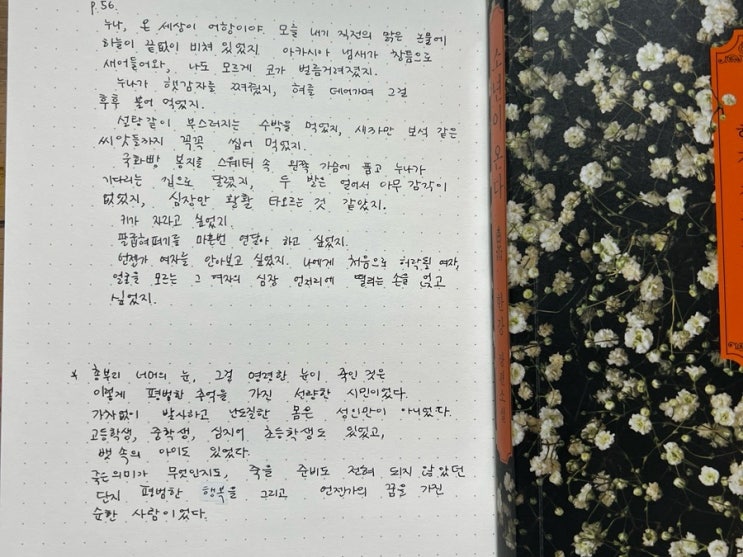 p.56.
누나, 온 세상이 어항이야. 모를 내기 직전의 맑은 논물에
하늘이 끝없이 비쳐 있었지. 아카시아 냄새가 창틈으로
새어들어와, 나도 모르게 코가 벌름거려졌지.
누나가 햇감자를 쪄줬지, 혀를 데어가며 그걸
후후 불어 먹었지.
설탕같이 부스러지는 수박을 먹었지, 새까만 보석 같은
씨앗들까지 꼭꼭 씹어 먹었지.
국화빵 봉지를 스웨터 속 왼쪽 가슴에 품고 누나가
기다리는 집으로 달렸지, 두 발은 얼어서 아무 감각이
없었지, 심장만 활활 타오르는 것 같았지.
키가 자라고 싶었지.
팔굽혀펴기를 마흔번 연달아 하고 싶었지.
언젠가 여자를 안아보고 싶었지. 나에게 처음으로 허락될 여자,
얼굴을 모르는 그 여자의 심장 언저리에 떨리는 손을 얹고
싶었지.
* 총부리 너머의 눈, 그걸 연결한 눈이 죽인 것은
이렇게 평범한 추억을 가진 선량한 시민이었다.
가차없이 발사하고 난도질한 몸은 성인만이 아니었다.
고등학생, 중학생, 심지어 초등학생도 있었고,
뱃 속의 아이도 있었다.
죽는 의미가 무엇인지도, 죽을 준비도 전혀 되지 않았던
단지 평범한 행복을 그리고 언젠가의 꿈을 가진
순한 사람이었다.
소년이 온다
한강 장편소설